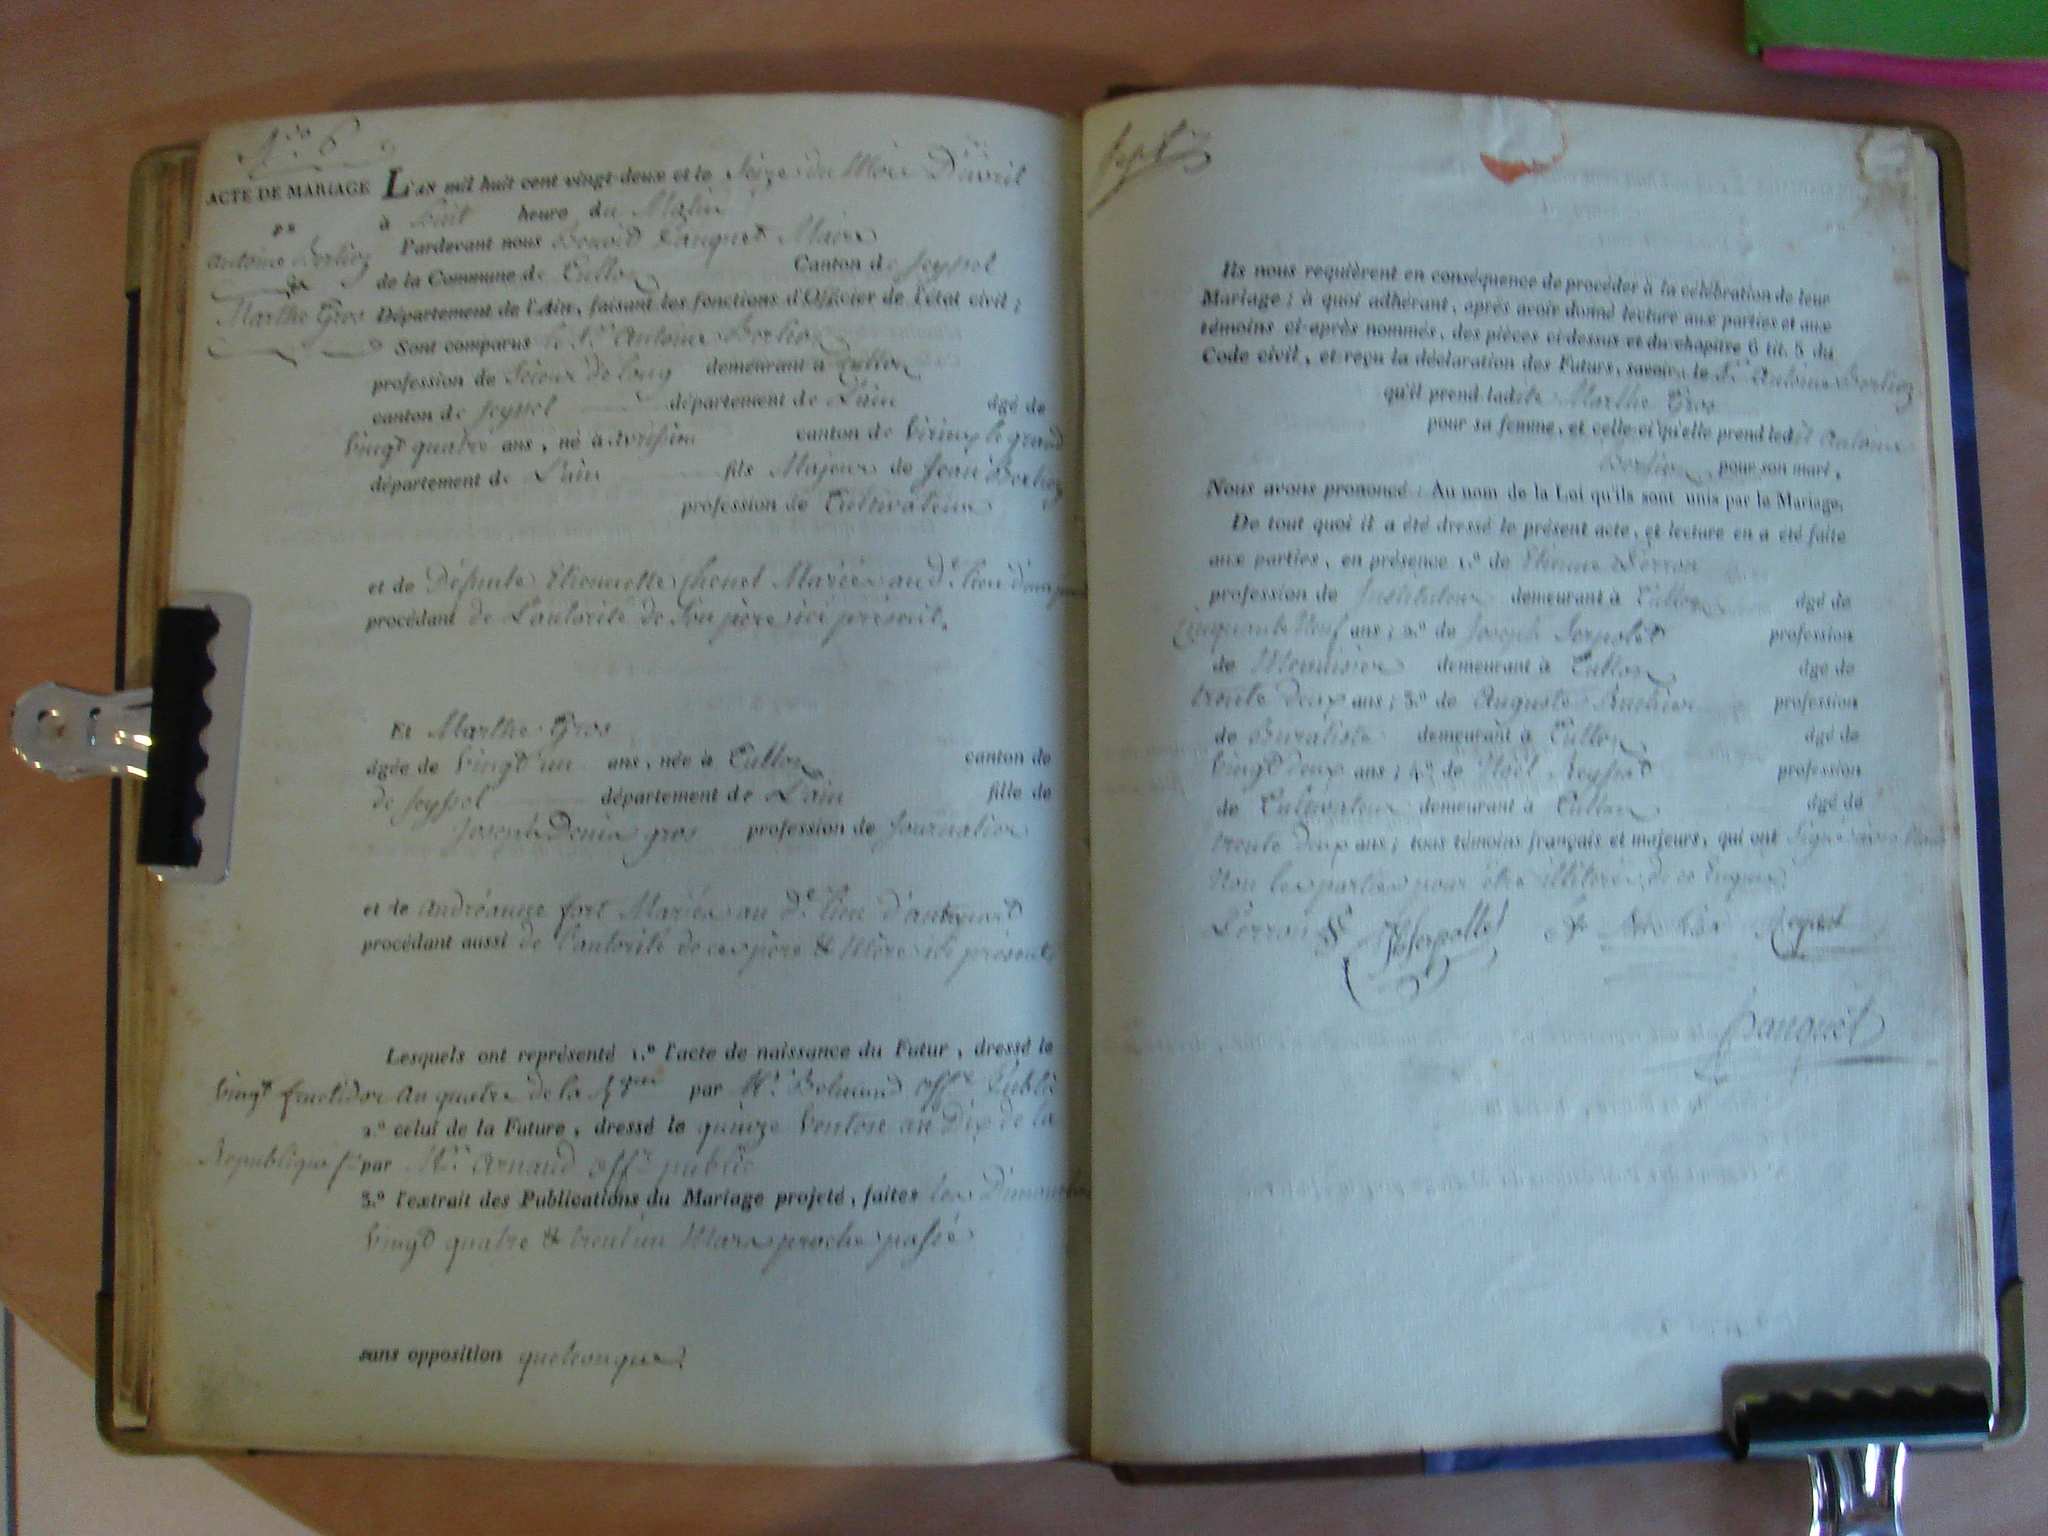 N.ro 6
ACTE DE MARIAGE
DE
Antoine Berlioz
&
Marthe Gros
L'AN mil huit cent vingt-deux et le Seize du Mois D'avril
à huit heure du Matin
Pardevant nous Benoit Panquet Maire
de la Commune de Culloz Canton de Seyssel
Département de l'Ain, faisant les fonctions d'Officier de l'état civil;
Sont comparus le S.r Antoine Berlioz
profession de Scieur de long demeurant à Culloz
canton de Seyssel département de L'ain âgé de
vingt quatre ans, né à canton de Virieux le grand
département de L'ain fils Majeur de Jean Berlioz
profession de Cultivateur
et de Défunte Etiennette Chenet Mariés au d.t lieu
procédant de L'autorité de Son père ici présent.
Et Marthe Gros
âgée de Vingt un ans, née à Culloz canton de
de Seyssel département de L'ain fille de
Joseph Denis gros profession de Journalier
et de andréanne fort Mariés au d.t lieu
procédant aussi de l'autorité de ces père & Mère ici présents
Lesquels ont représenté 1.º l'acte de naissance du Futur, dressé le
Vingt fructidor an quatre de la par M.r off.r Public
2.º celui de la Future, dressé le quinze Ventose an Dix de la
Republique f.se par M.r Arnaud off.r public
3.º l'extrait des Publications du Mariage projeté, faites les Dimanches
Vingt quatre & trent'un Mars proche passé
sans opposition quelconque.
Sept
Ils nous requièrent en conséquence de procéder à la célébration de leur
Mariage; à quoi adhérant, après avoir donné lecture aux parties et aux
témoins ci-après nommés, des pièces ci-dessus et du chapitre 6 tit. 5 du
Code civil, et reçu la déclaration des Futurs, savoir: le S.r Antoine Berlioz
qu'il prend ladite Marthe Gros
pour sa femme, et celle-ci qu'elle prend ledit Antoine
Berlioz pour son mari,
Nous avons prononcé: Au nom de la Loi qu'ils sont unis par le Mariage.
De tout quoi il a été dressé le présent acte, et lecture en a été faite
aux parties, en présence 1.º de Etienne Perron
profession de Instituteur demeurant à Culloz âgé de
Cinquante Neuf ans; 2.º de Joseph Serpolet profession
de Menuisier demeurant à Culloz âgé de
trente deux ans; 3.º de Auguste profession
de Buraliste demeurant à Culloz âgé de
Vingt deux ans; 4.º de Noël Reysset profession
de Cultivateur demeurant à Culloz âgé de
trente deux ans; tous témoins français et majeurs, qui ont Signé avec Nous
Non les parties pour être illitérés de ce Enquis.
Perron
Panquet